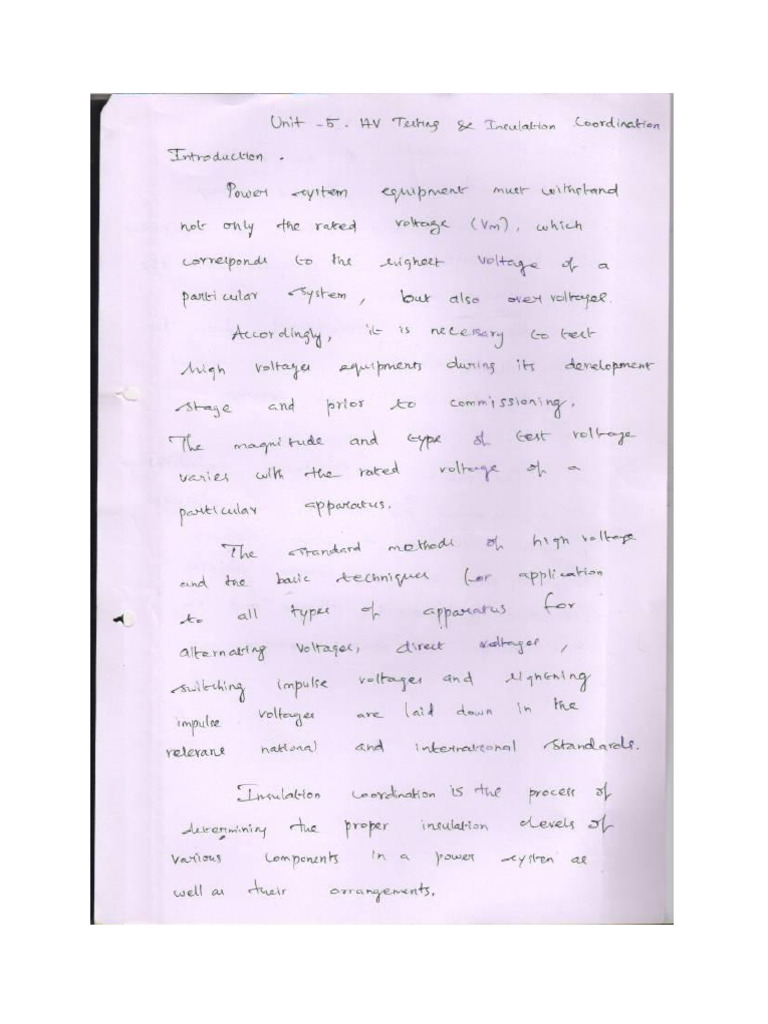 Unit - 5. HV Testing & Insulation Coordination
Introduction.
Power system equipment must withstand
not only the rated voltage (Vm), which
corresponds to the highest voltage of a
particular system, but also over voltages.
Accordingly, it is necessary to test
high voltages equipments during its development
stage and prior to commissioning.
The magnitude and type of test voltage
varies with the rated voltage of a
particular apparatus.
The standard methods of high voltage
and the basic techniques for application
to all types of apparatus for
alternating voltages, direct voltages,
switching impulse voltages and lightning
impulse voltages are laid down in the
relevant national and international standards.
Insulation coordination is the process of
determining the proper insulation levels of
various components in a power system as
well as their arrangements.